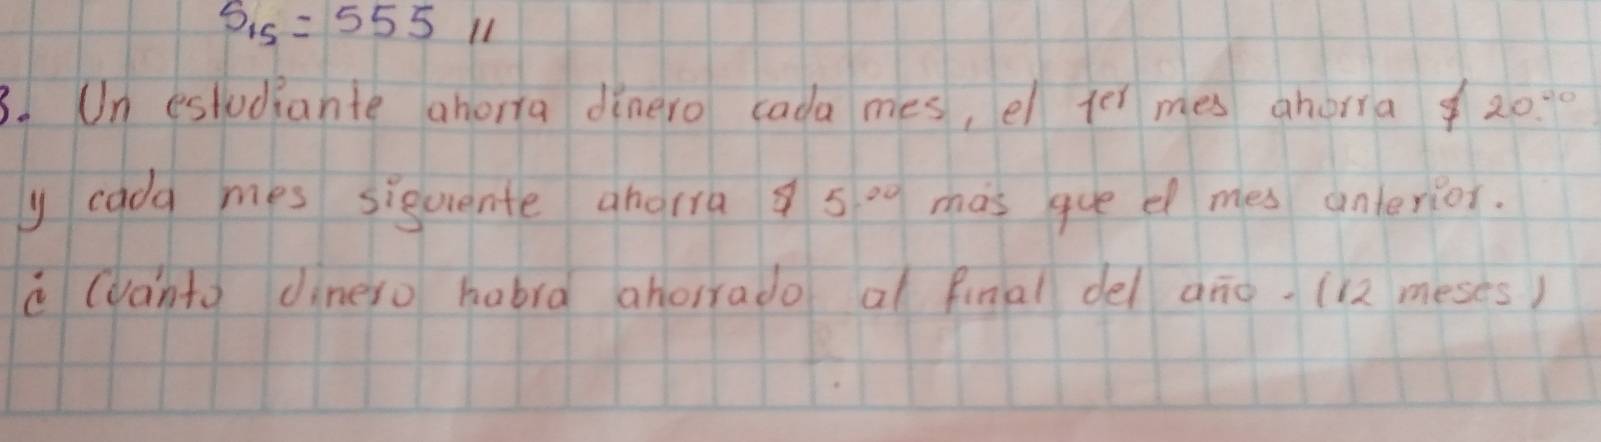 S₁₅ = 555 //
3. Un estudiante ahorra dinero cada mes, el 1er mes ahorra $ 20.00
y cada mes siguiente ahorra $ 5.00 más que el mes anterior.
¿ Cuánto dinero habrá ahorrado al final del año. (12 meses)